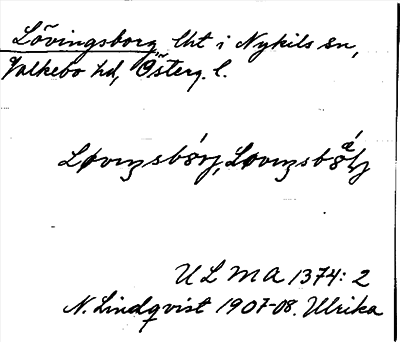 Lövingsborg lht i Nykils sn,
Valkebo hd, Österg. l.
Løvıŋsbȯrj, Løvıŋsbörj
ULMA 1374: 2
N. Lindqvist 1907-08. Ulrika